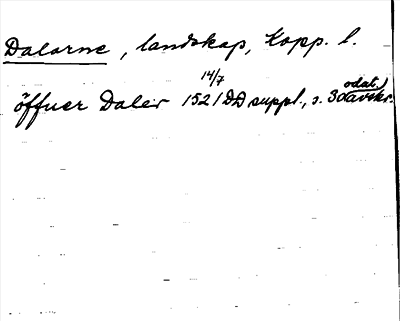 Dalarne, landskap, Kopp. l.
öffuer Daler 1521 14/7 DD suppl., s. 30 odat. avskr.